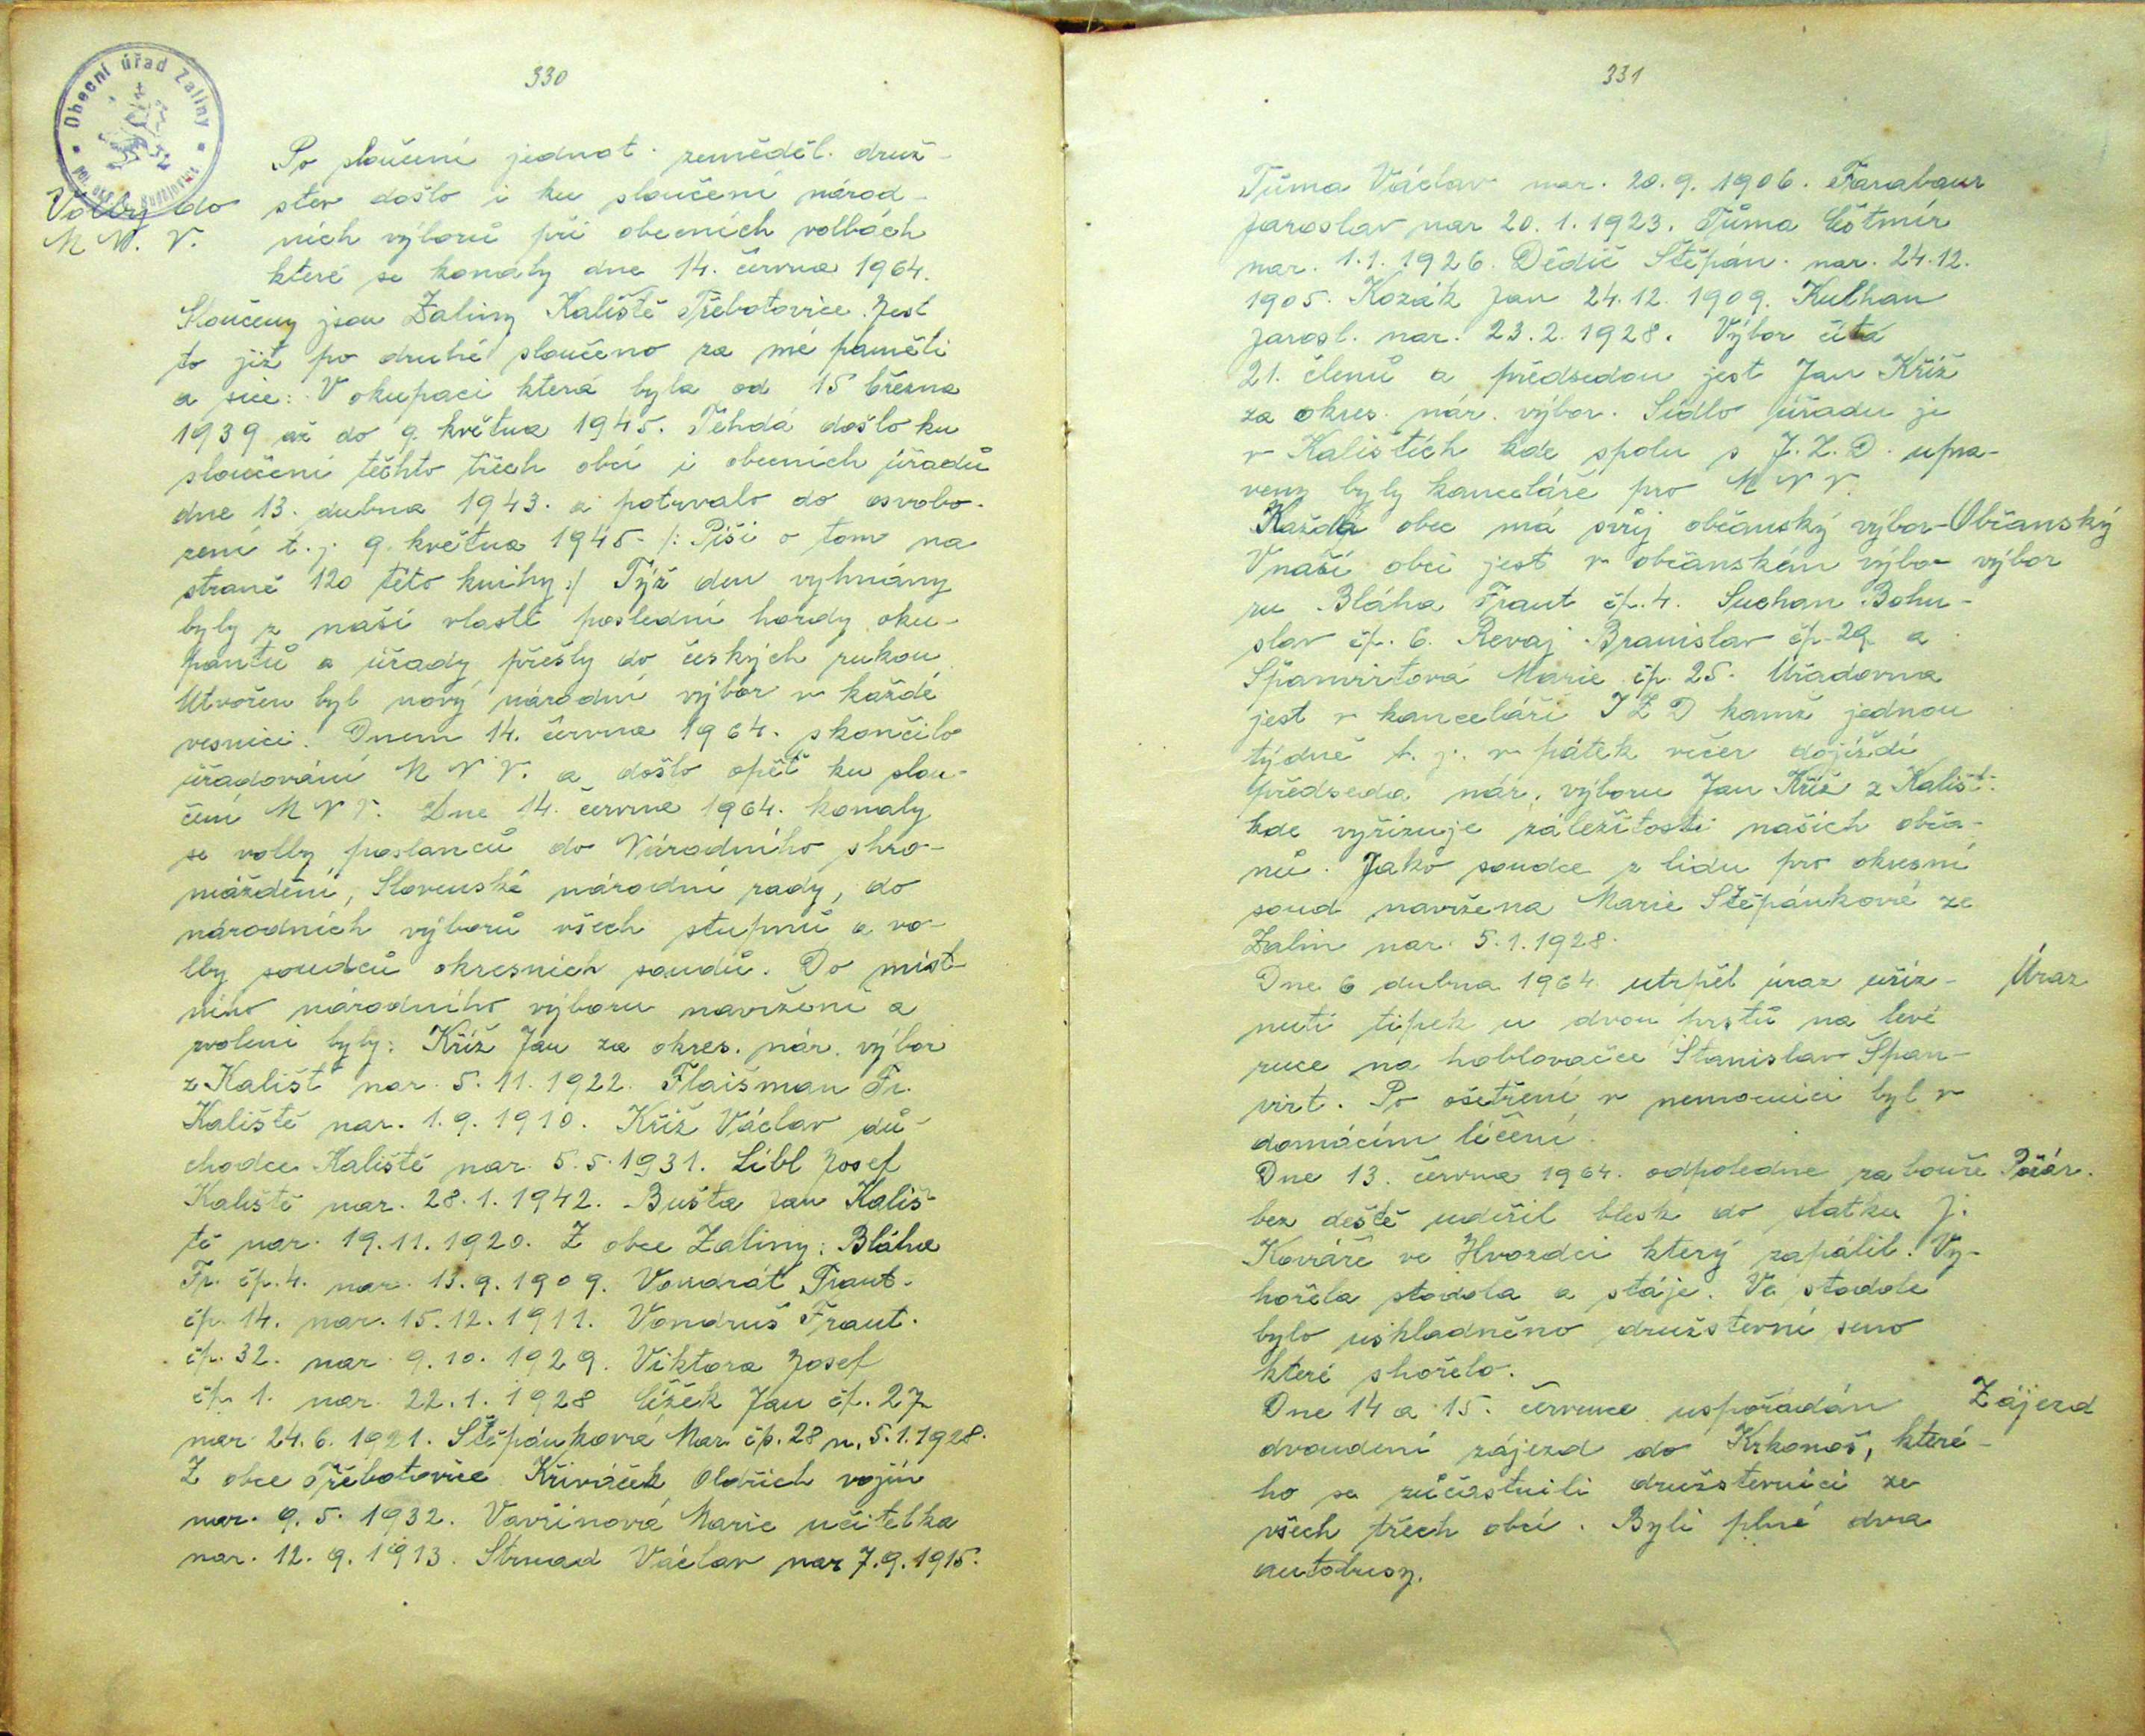 330
Obecní úřad Zaliny
Volby do
M N. V.
Po sloučení jednot. zeměděl. druž-
stev došlo i ku sloučení národ-
ních výborů při obecních volbách
které se konaly dne 14. června 1964.
Sloučeny jsou Zaliny Kaliště Třebotovice. Jest
to již po druhé sloučeno za mé paměti
a sice: V okupaci která byla od 15 března
1939 až do 9. května 1945. Tehdá došlo ku
sloučení těchto třech obcí i obecních úřadů
dne 13. dubna 1943. a potrvalo do osvobo-
zení t.j. 9. května 1945- /: Píši o tom na
straně 120 této knihy :/ Týž den vyhnány
byly z naší vlasti poslední hordy oku-
pantů a úřady přešly do českých rukou.
Utvořen byl nový národní výbor v každé
vesnici. Dnem 14. června 1964. skončilo
úřadování M N V. a došlo opět ku slou-
čení M N V. Dne 14. června 1964. konaly
se volby poslanců do Národního shro-
máždění, Slovenské národní rady, do
národních výborů všech stupňů a vo-
lby soudců okresních soudů. Do míst-
ního národního výboru navrženi a
zvoleni byly: Kříž Jan za okres. nár. výbor
z Kališť nar. 5. 11. 1922. Flaišman Fr.
Kaliště nar. 1. 9. 1910. Kříž Václav dů-
chodce Kaliště nar. 5. 5. 1931. Libl Josef
Kaliště nar. 28. 1. 1942. Bušta Jan Kališ-
tě nar. 19. 11. 1920. Z obce Zaliny: Bláha
Fr. čp. 4. nar. 13. 9. 1909. Vondrát Frant.
čp. 14. nar. 15. 12. 1911. Vondruš Frant.
čp. 32. nar. 9. 10. 1929. Viktora Josef
čp. 1. nar. 22. 1. 1928 Čížek Jan čp. 27
nar. 24. 6. 1921. Štěpánková Mar. čp. 28 n. 5. 1. 1928.
Z obce Třebotovice Křiváček Oldřich vojín
nar. 9. 5. 1932. Vavřinová Marie učitelka
nar. 12. 9. 1913. Strnad Václav nar 7. 9. 1915.
331
Tůma Václav nar. 20. 9. 1906. Farabaur
Jaroslav nar 20. 1. 1923. Tůma Čstmír
nar. 1. 1. 1926. Dědič Štěpán. nar. 24. 12.
1905. Kozák Jan 24. 12. 1909. Kulhan
Jarosl. nar. 23. 2. 1928. Výbor čítá
21. členů a předsedou jest Jan Kříž
za okres. nár. výbor. Sídlo úřadu je
v Kalištích kde spolu s J. Z. D. upra-
veny byly kanceláře pro M N V.
Každá obec má svůj občanský výbor- Občanský
V naší obci jest v občanském výbo- výbor
ru Bláha Frant čp. 4. Suchan Bohu-
slav čp. 6. Revaj Branislav čp. 29 a
Španvirtová Marie čp. 25. Úřadovna
jest v kanceláři J Z D kamž jednou
týdně t. j. v pátek večer dojíždí
předseda nár. výboru Jan Kříž z Kališť.
kde vyřizuje záležitosti našich obča-
nů. Jako soudce z lidu pro okresní
soud navržena Marie Štěpánková ze
Zalin nar. 5. 1. 1928.
Dne 6 dubna 1964 utrpěl úraz uříz- Úraz
nutí tipek u dvou prstů na levé
ruce na hoblovačce Stanislav Špan-
virt. Po ošetření v nemocnici byl v
domácím léčení.
Dne 13. června 1964. odpoledne za bouře Požár.
bez deště udeřil blesk do statku J.
Kováře ve Hvozdci který zapálil. Vy-
hořela stodola a stáje. Ve stodole
bylo uskladněno družstevní seno
které shořelo.
Dne 14 a 15. července uspořádán Zájezd
dvoudení zájezd do Krkonoš, které-
ho se zúčastnili družstevníci ze
všech třech obcí. Byli plné dva
autobusy.